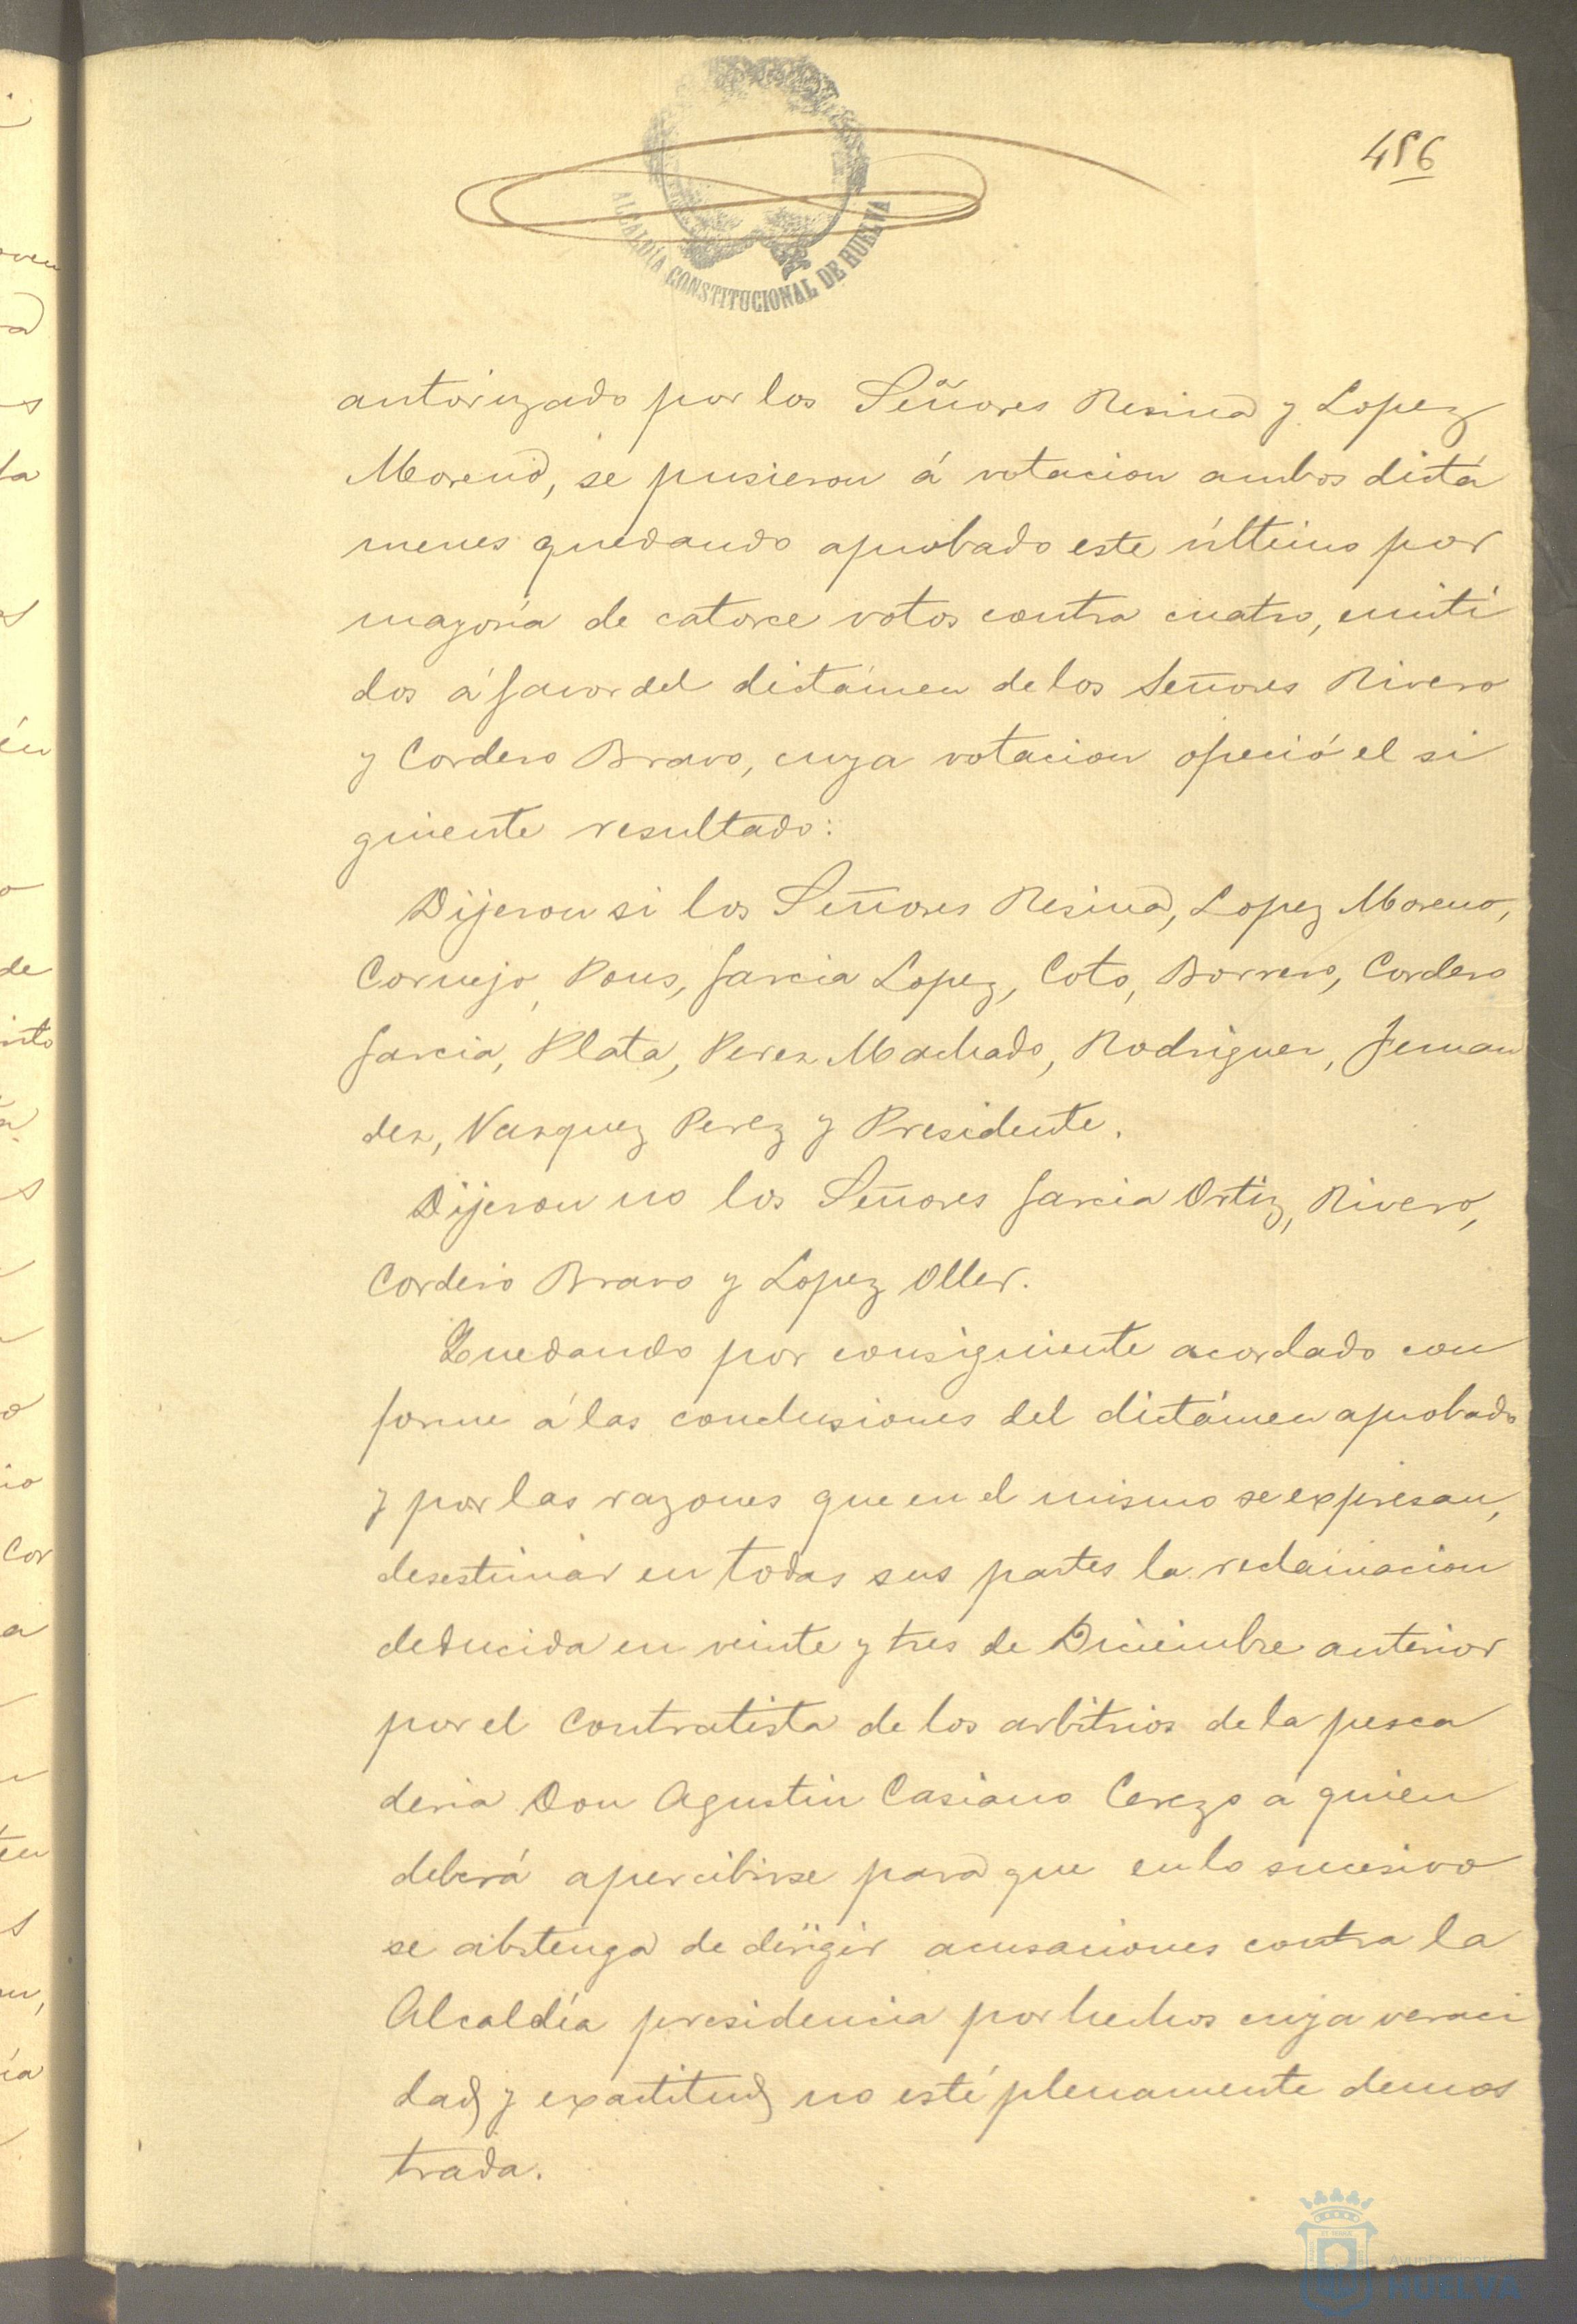 456
ALCALDÍA CONSTITUCIONAL DE HUELVA
autorizado por los Señores Resina y Lopez
Moreno, se pusieron á votacion ambos dictá
menes quedando aprobado este último por
mayoría de catorce votos contra cuatro, emiti
dos á favor del dictámen de los Señores Rivero
y Cordero Bravo, cuya votacion ofreció el si
guiente resultado:
Dijeron si los Señores Resina, Lopez Moreno,
Cornejo, Pons, Garcia Lopez, Coto, Borrero, Cordero
Garcia, Plata, Perez Machado, Rodriguez, Fernan
dez, Vazquez Perez y Presidente.
Dijeron no los Señores Garcia Ortiz, Rivero,
Cordero Bravo y Lopez Oller.
Quedando por consiguiente acordado con
forme á las conclusiones del dictámen aprobado
y por las razones que en el mismo se expresan,
desestimar en todas sus partes la reclamacion
deducida en veinte y tres de Diciembre anterior
por el contratista de los arbitrios de la pesca
deria Don Agustin Casiano Cerezo á quien
deberá apercibirse para que en lo sucesivo
se abstenga de dirigir acusaciones contra la
Alcaldía presidencia por hechos cuya veraci
dad y exactitud no esté plenamente demos
trada.
HUELVA